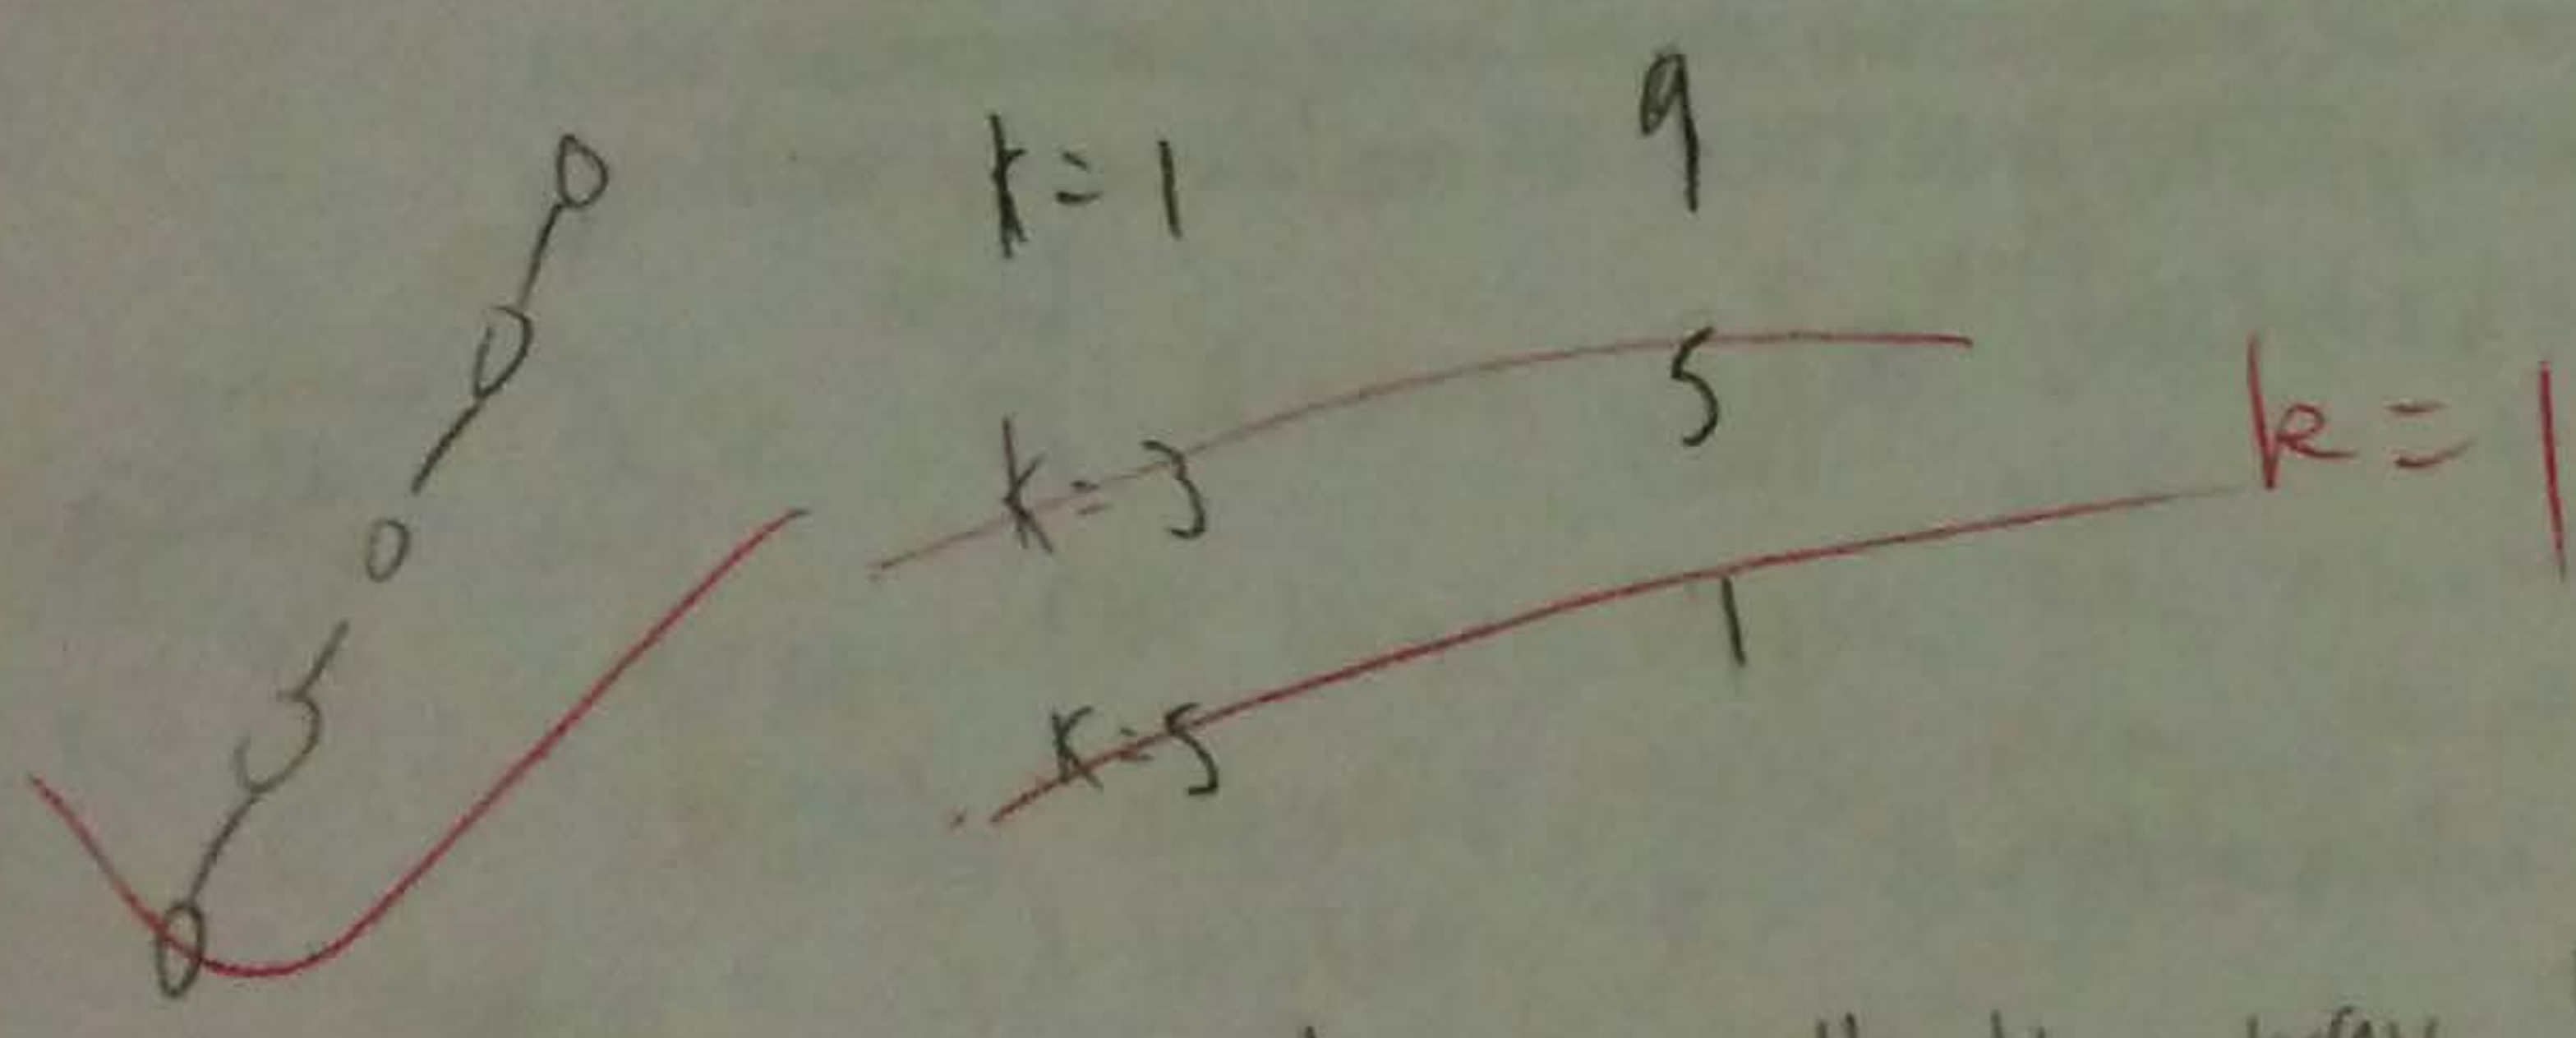 k=1 9
k=3 5
k=1
k=5 1